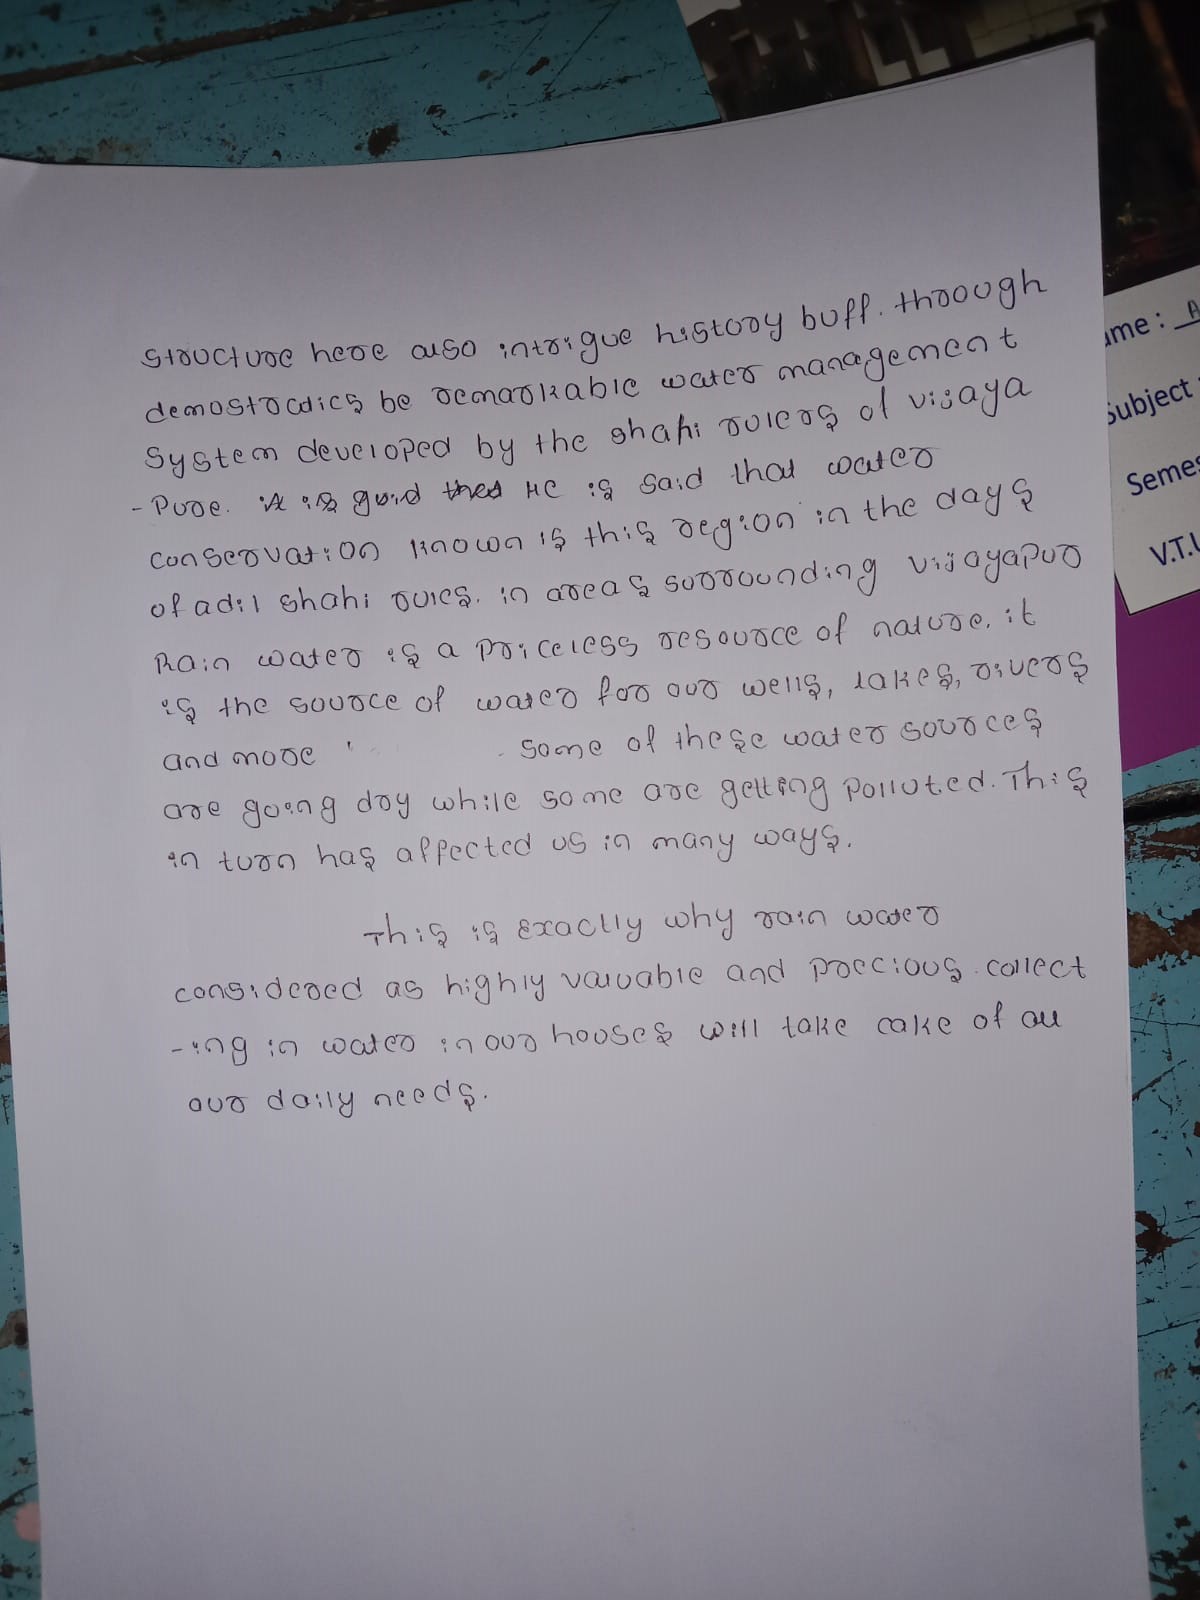 structure here also intrigue history buff. through
demostratics be remarkable water management
system developed by the shahi rulers of vijaya
-Pure. it is said that HC is said that water
conservation known is this region in the days
of adil shahi rules. in areas surrounding vijayapur
Rain water is a priceless resource of nature. it
is the source of water for our wells, lakes, rivers
and more some of these water sources
are going dry while some are getting polluted. This
in turn has affected us in many ways.
This is exactly why rain water
considered as highly valuable and precious. collect
-ing in water in our houses will take cake of all
our daily needs.
ame : A
Subject :
Semes
V.T.U